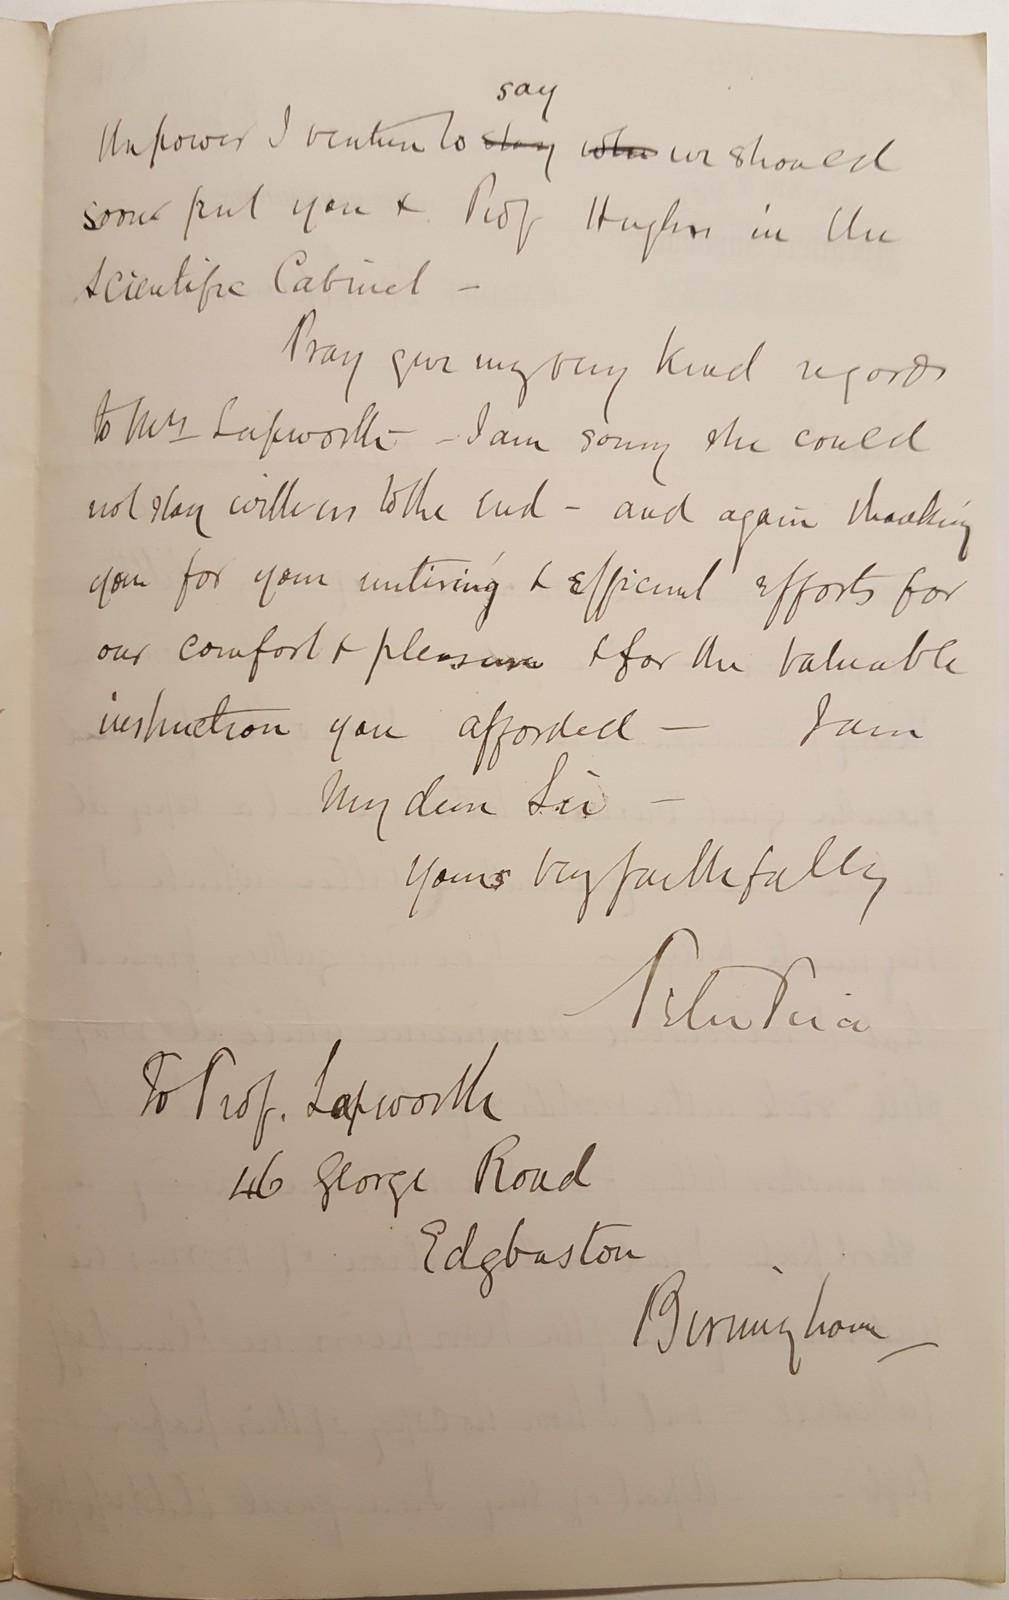 the power I venture to stay say when we should
soon put you & Prof Hughes in the
Scientific Cabinet –
Pray give my very kind regards
to Mrs Lapworth – I am sorry she could
not stay with us to the end – and again thanking
you for your untiring & efficient efforts for
our comfort & pleasure & for the valuable
instruction you afforded – I am
My dear Sir –
Yours very faithfully
Peter
To Prof. Lapworth
46 George Road
Edgbaston
Birmingham